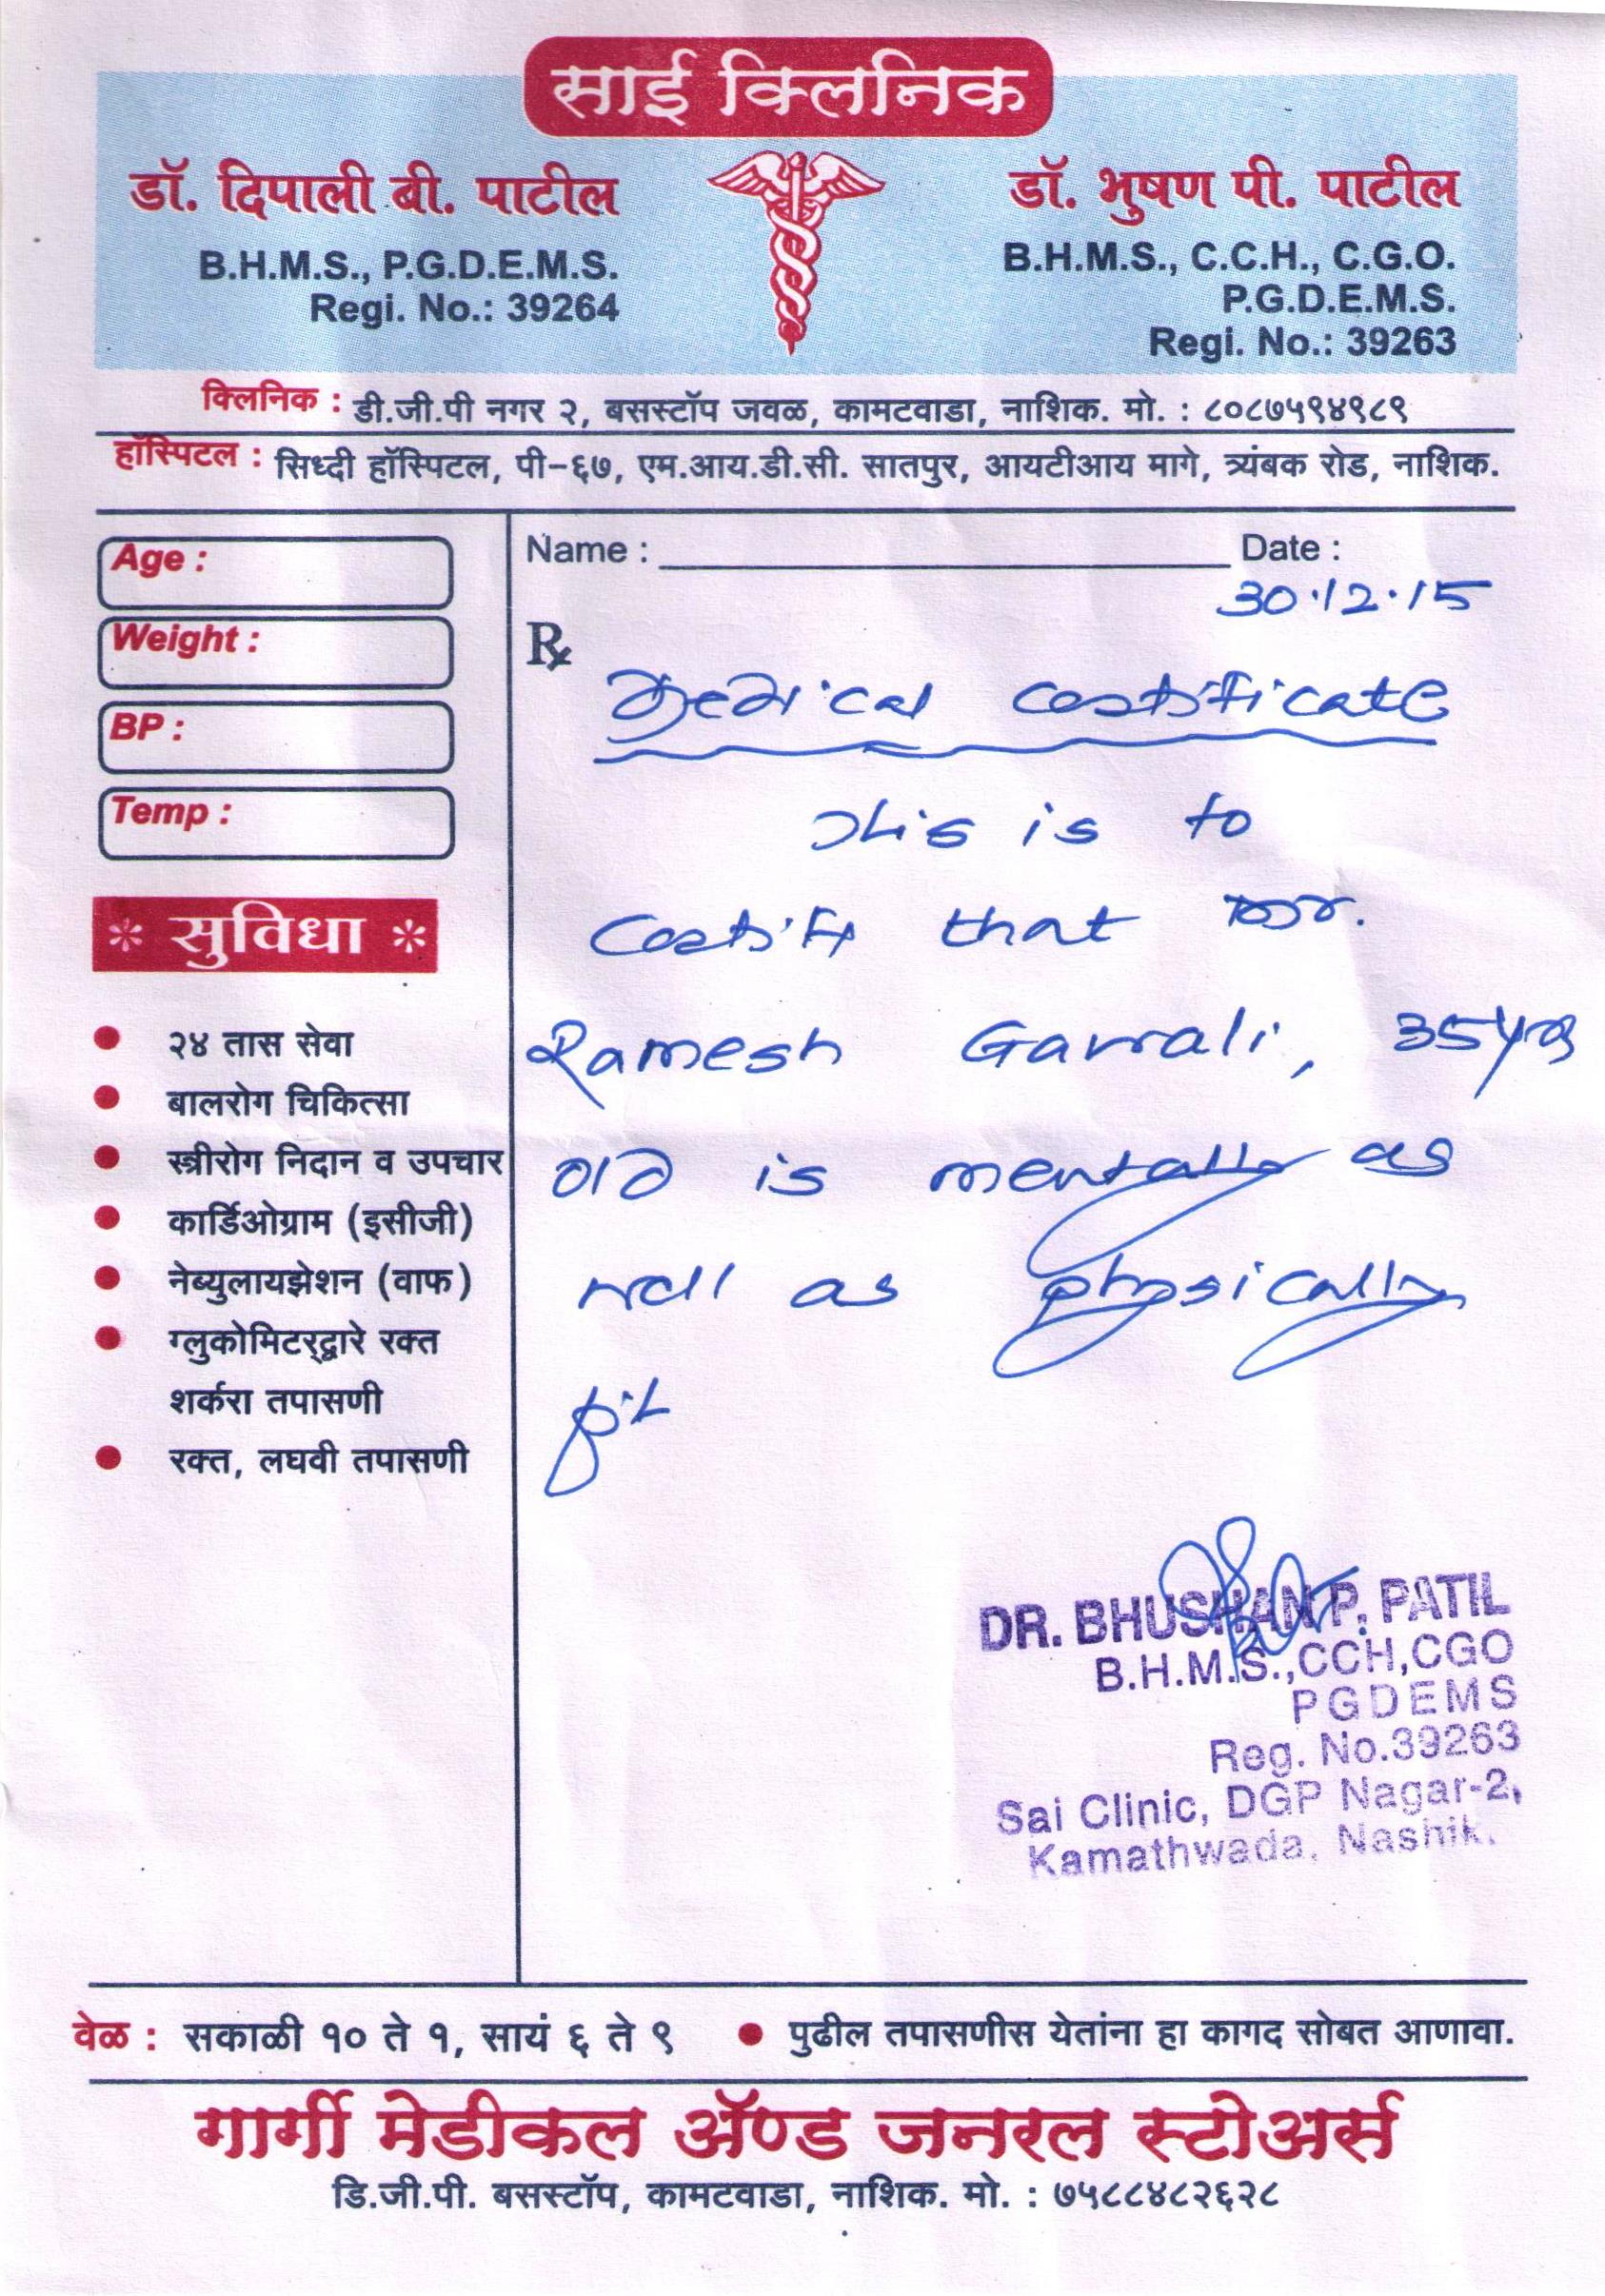 साई क्लिनिक
डॉ. दिपाली बी. पाटील
B.H.M.S., P.G.D.E.M.S.
Regi. No.: 39264
डॉ. भुषण पी. पाटील
B.H.M.S., C.C.H., C.G.O.
P.G.D.E.M.S.
Regi. No.: 39263
क्लिनिक : डी.जी.पी नगर २, बसस्टॉप जवळ, कामटवाडा, नाशिक. मो. : ८०८७५९४९८९
हॉस्पिटल : सिध्दी हॉस्पिटल, पी-६७, एम.आय.डी.सी. सातपुर, आयटीआय मागे, त्र्यंबक रोड, नाशिक.
Age :
Weight :
BP :
Temp :
* सुविधा *
• २४ तास सेवा
• बालरोग चिकित्सा
• स्त्रीरोग निदान व उपचार
• कार्डिओग्राम (इसीजी)
• नेब्युलायझेशन (वाफ)
• ग्लुकोमिटरद्वारे रक्त
शर्करा तपासणी
• रक्त, लघवी तपासणी
Name : Date :
30.12.15
Rx
Medical Certificate
This is to
Certify that Mr.
Ramesh Gavali, 35yrs
old is mentally as
well as physically
fit
DR. BHUSHAN P. PATIL
B.H.M.S.,CCH,CGO
PGDEMS
Reg. No.39263
Sai Clinic, DGP Nagar-2,
Kamathwada, Nashik.
वेळ : सकाळी १० ते १, सायं ६ ते ९ • पुढील तपासणीस येतांना हा कागद सोबत आणावा.
गार्गी मेडीकल ॲण्ड जनरल स्टोअर्स
डि.जी.पी. बसस्टॉप, कामटवाडा, नाशिक. मो. : ७५८८४८२६२८